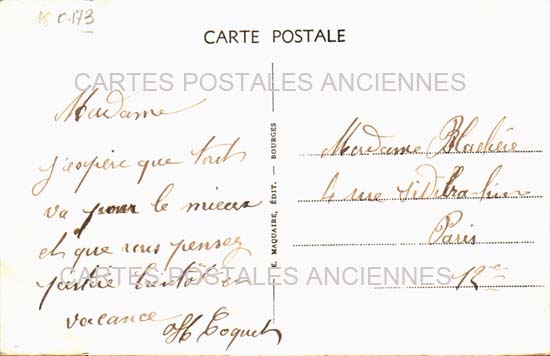 18 0-173
CARTE POSTALE
CARTES POSTALES ANCIENNES
Madame
j'espère que tout
va pour le mieux
et que vous pensez
partir bientôt en
vacance
H Coquet
E. MAQUAIRE, ÉDIT. - BOURGES
Madame Blachère
rue
Paris
12e
CARTES POSTALES ANCIENNES